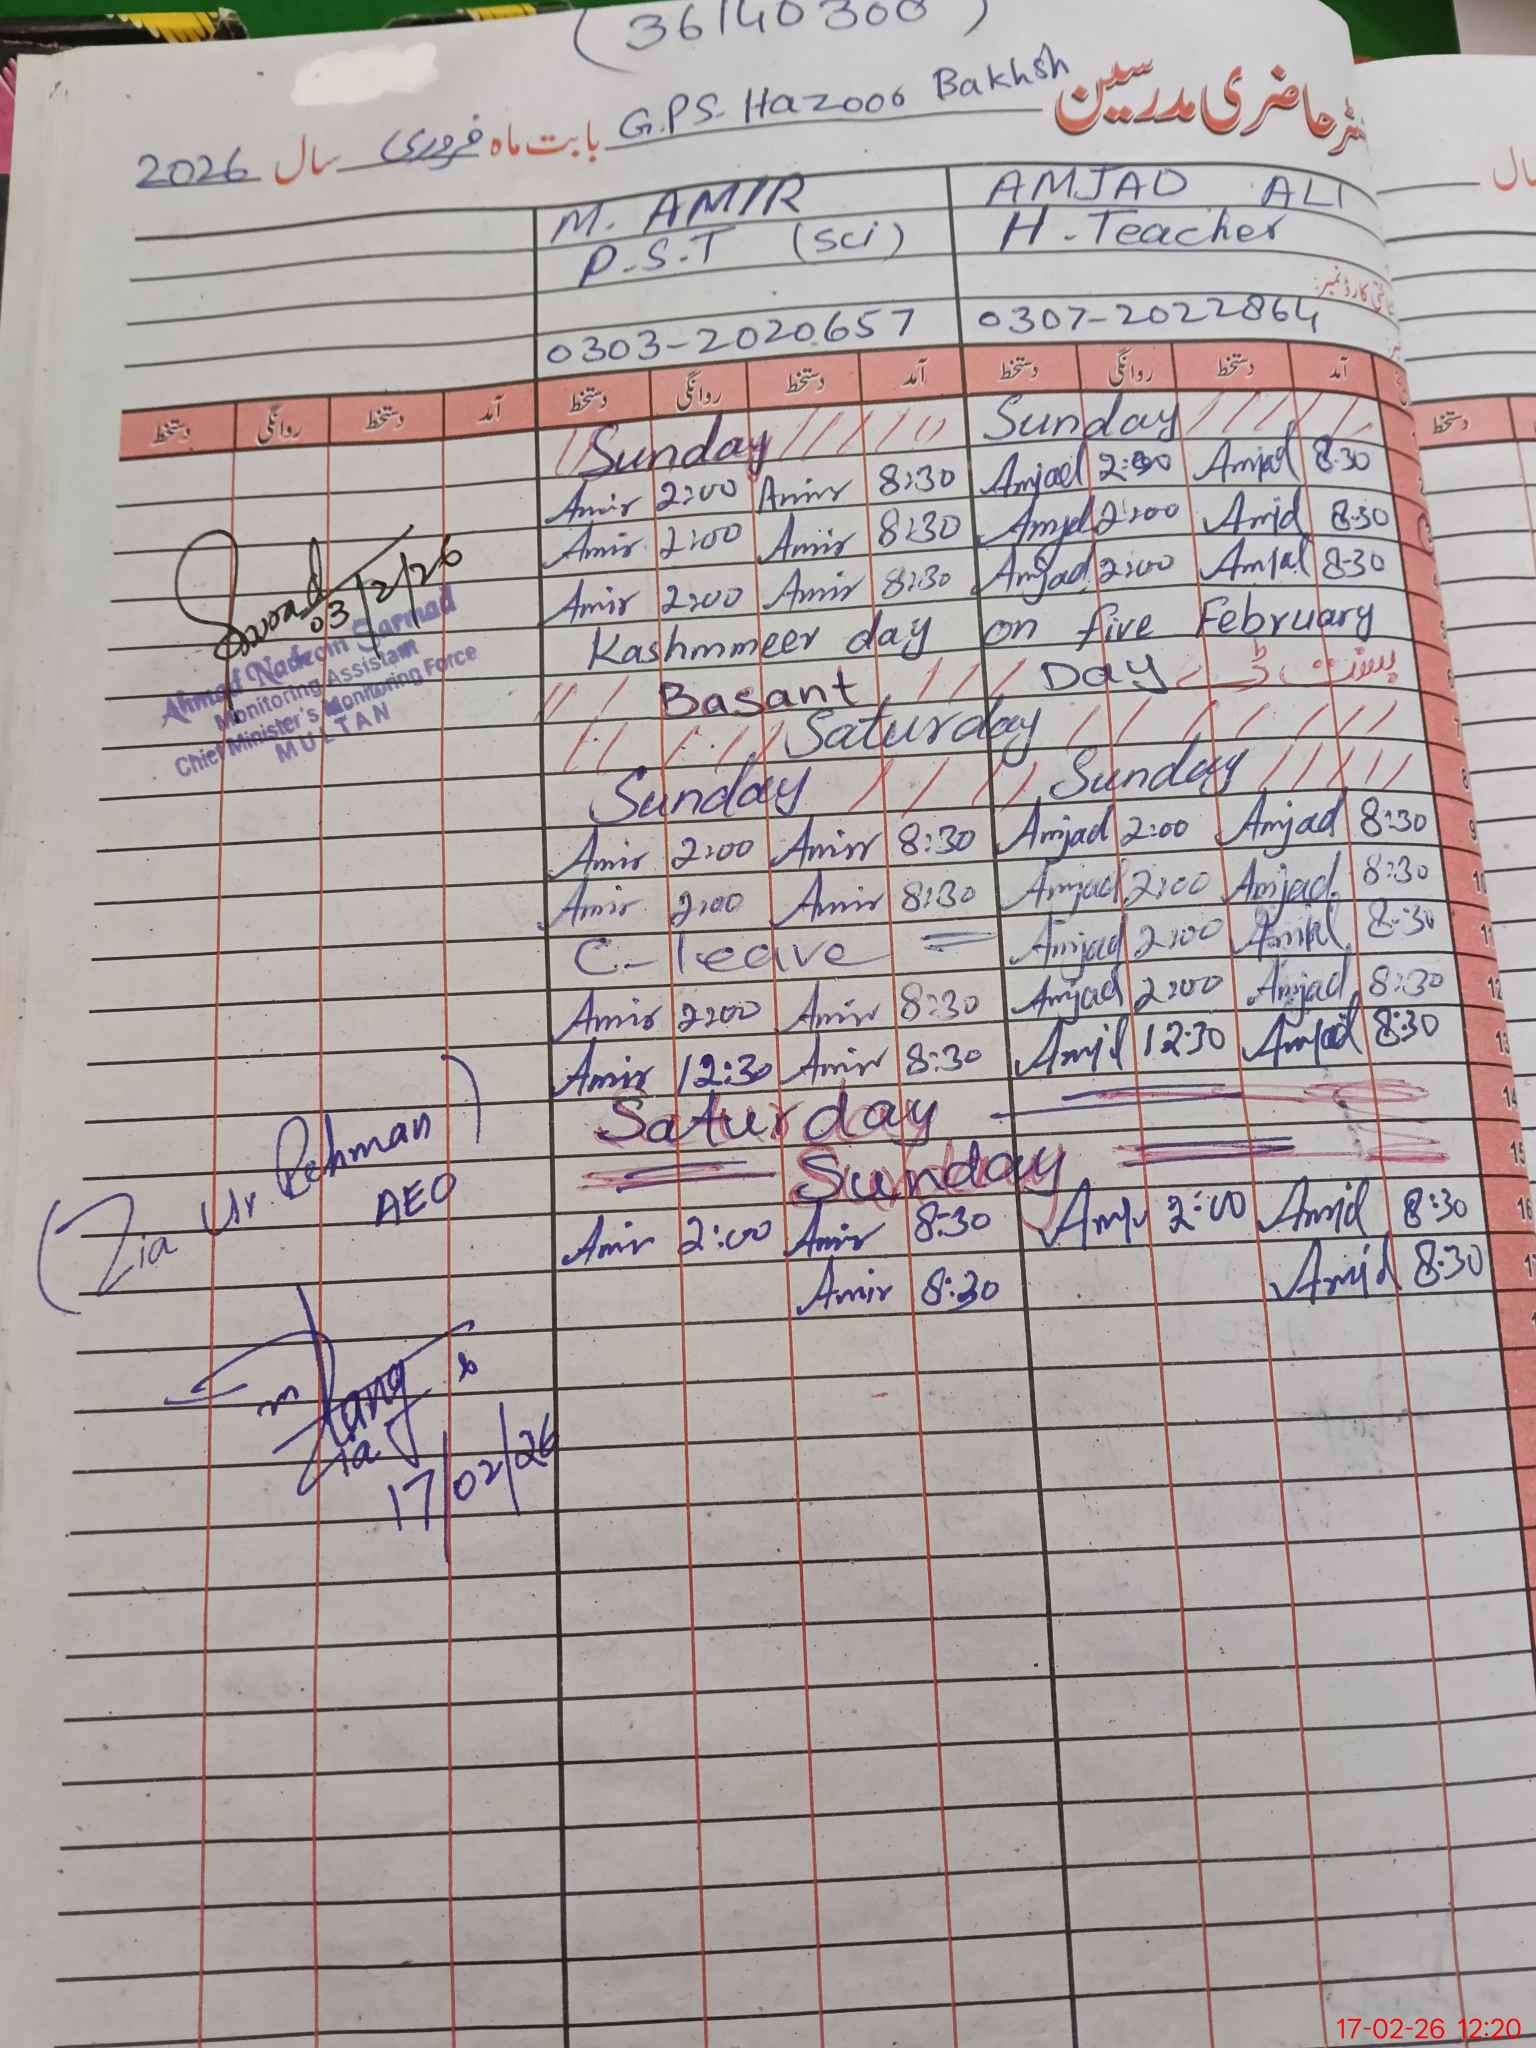 (36140300)
رجسٹر حاضری مدرسین G.P.S. Hazoor Bakhsh بابت ماہ فروری سال 2026
M. AMIR AMJAD ALI
P.S.T (Sci) H.Teacher
0303-2020657 0307-2022864
آمد دستخط روانگی دستخط آمد دستخط روانگی دستخط آمد دستخط روانگی دستخط
Sunday Sunday
Amir 2:00 Amir 8:30 Amjad 2:00 Amjad 8:30
Amir 2:00 Amir 8:30 Amjd 2:00 Amjd 8:30
Amir 2:00 Amir 8:30 Amjad 2:00 Amjad 8:30
Kashmmeer day on five February
Basant Day
Saturday
Sunday Sunday
Amir 2:00 Amir 8:30 Amjad 2:00 Amjad 8:30 9
Amir 2:00 Amir 8:30 Amjad 2:00 Amjad 8:30 10
C-leave = Amjad 2:00 Amjad 8:30 11
Amir 2:00 Amir 8:30 Amjad 2:00 Amjad 8:30 12
Amir 12:30 Amir 8:30 Amjd 12:30 Amjad 8:30 13
Saturday 14
Sunday 15
Amir 2:00 Amir 8:30 2:00 Amjd 8:30 16
Amir 8:30 Amjd 8:30 17
03/2/26
Ahmad Nadeem Sarmad
Monitoring Assistant
Chief Minister's Monitoring Force
MULTAN
(Zia Ur Rehman)
AEO
Zia
17/02/26
17-02-26 12:20